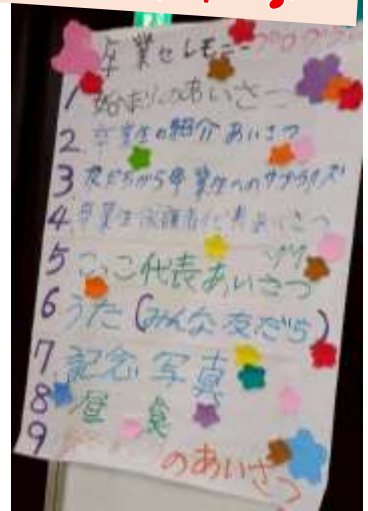 卒業セレモニー プログラム
1 始まりのあいさつ
2 卒業生の紹介 あいさつ
3 友だちから卒業生へのサプライズ
4 卒業生保護者代表あいさつ
5 代表あいさつ
6 うた(みんな友だち)
7 記念写真
8 昼食
9 のあいさつ